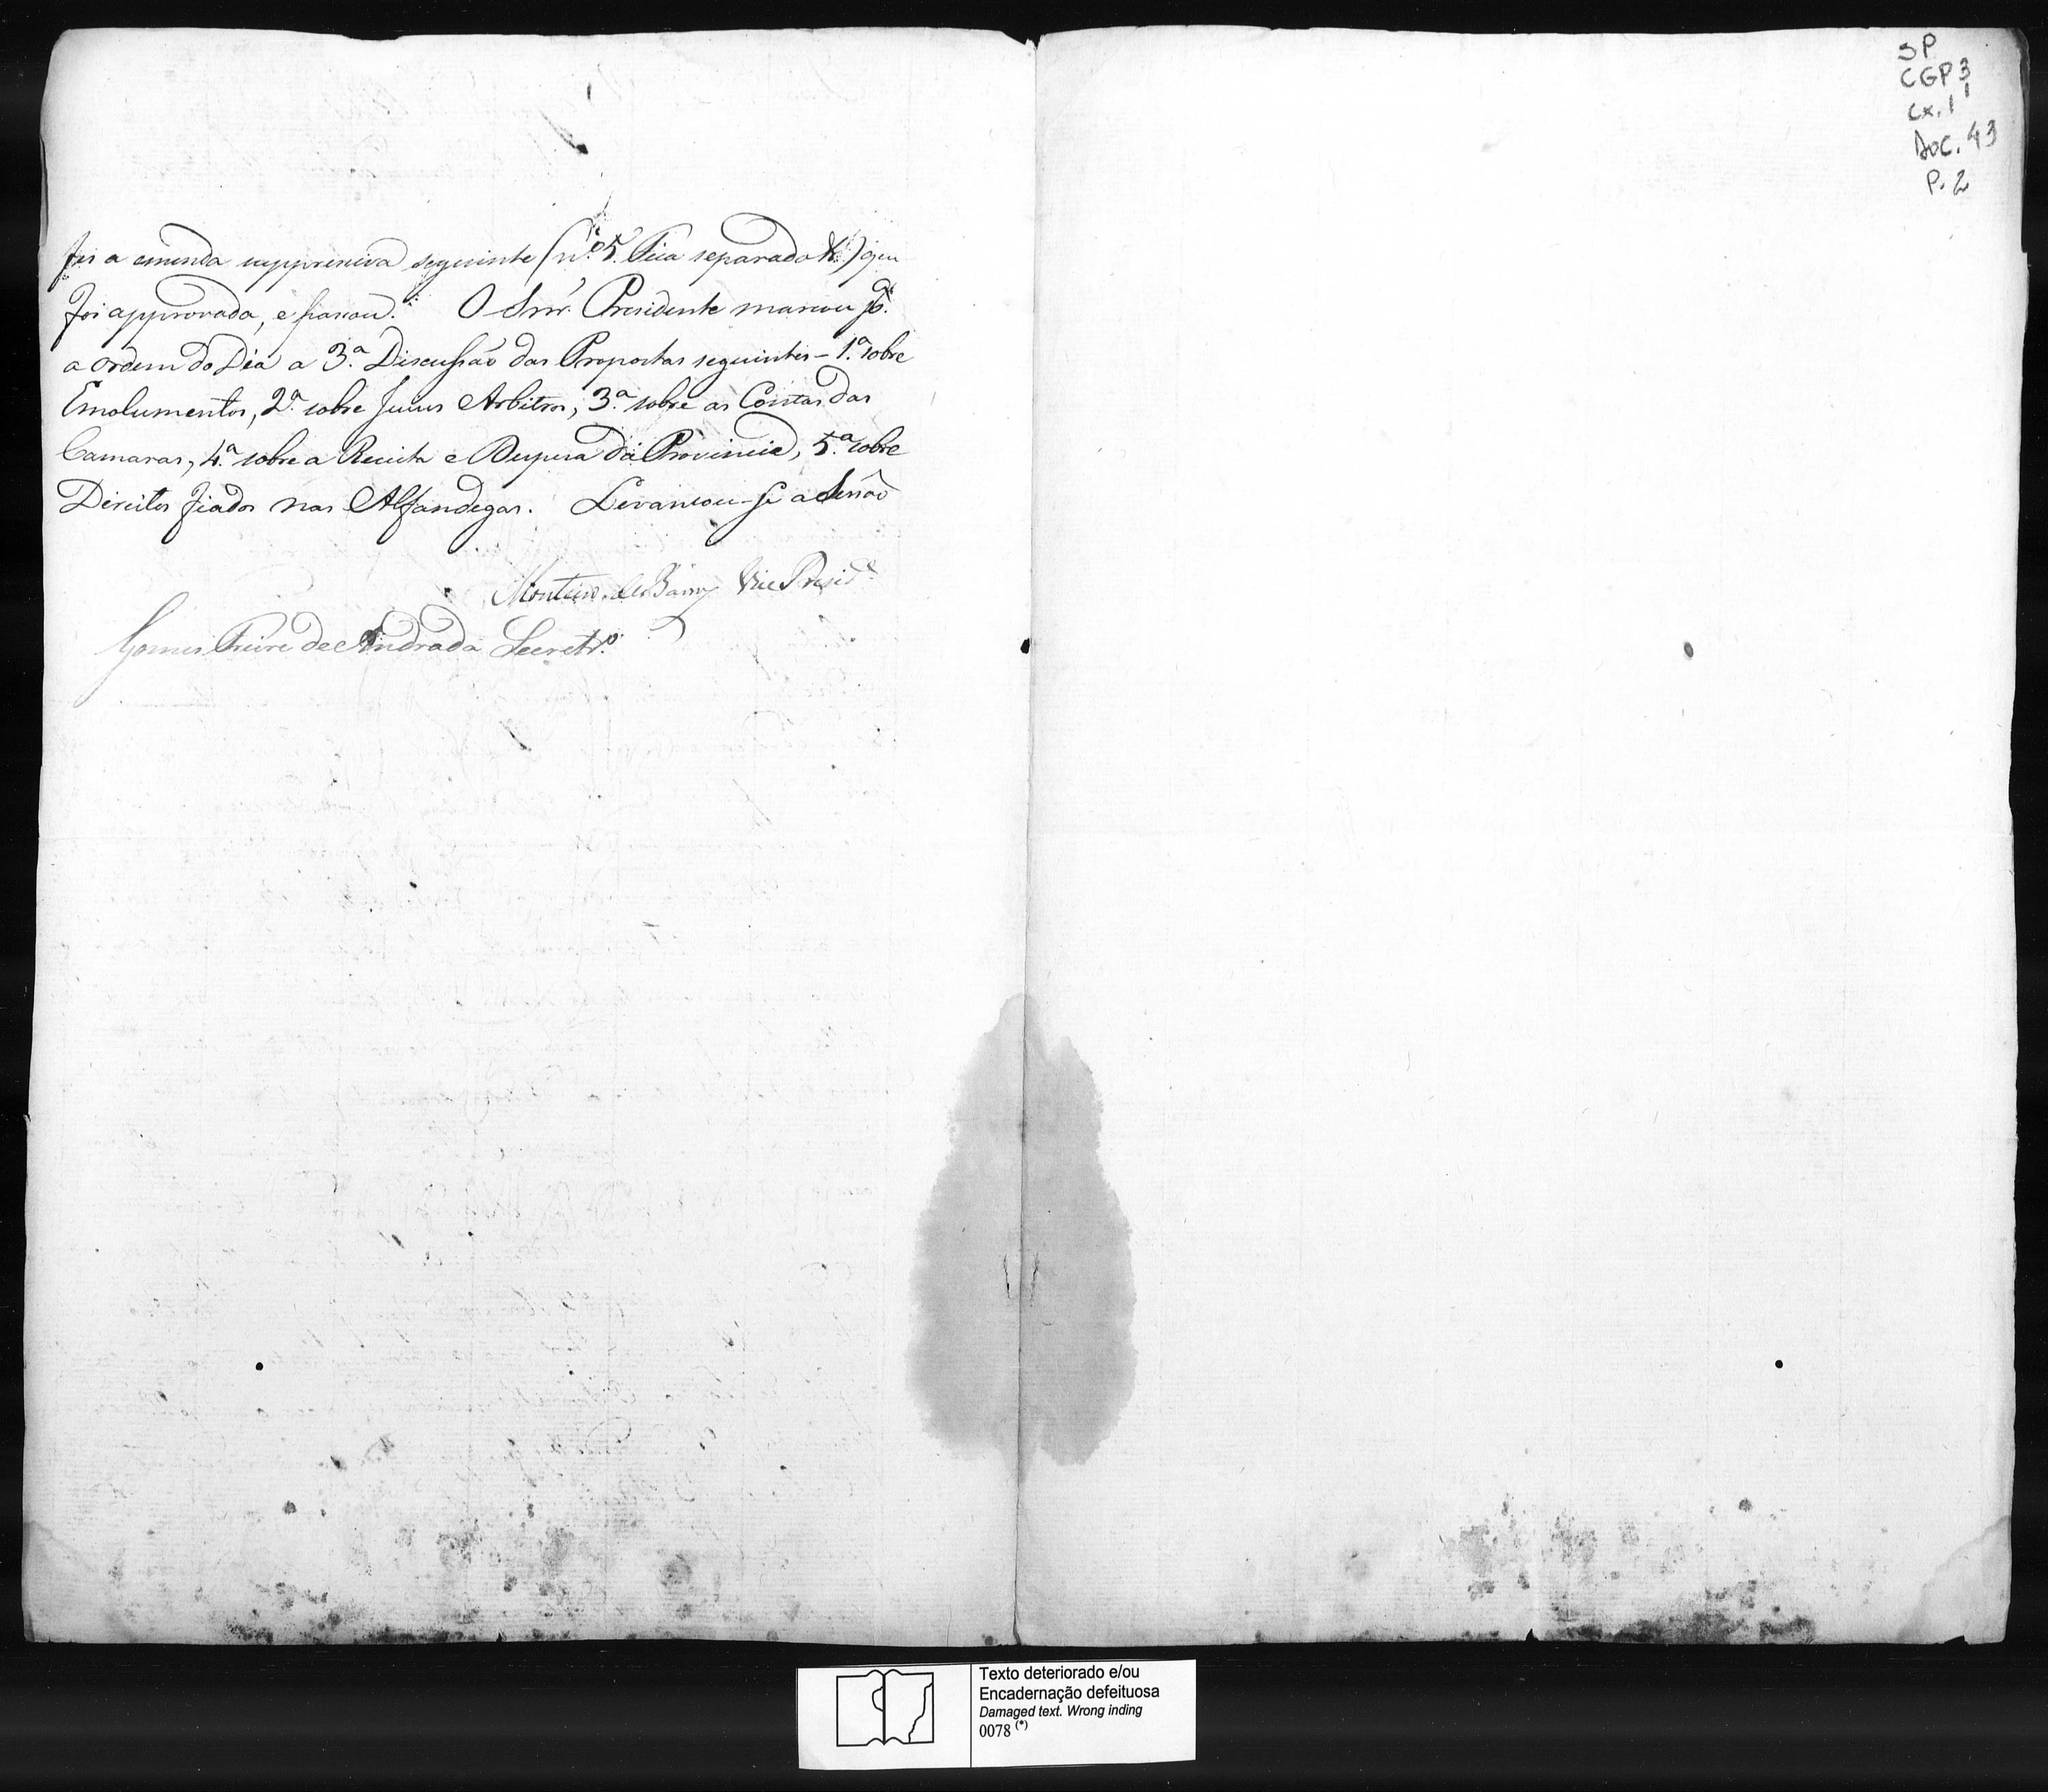 fes a emenda suppressiva seguinte (nº 5. Fica separado &) que
foi approvada, e passou. O Snr. Presidente marcou pª.
a ordem do Dia a 3.ª Discussão das Propostas seguintes - 1.ª sobre
Emolumentos, 2.ª sobre Juises Arbitros, 3.ª sobre as Contas das
Camaras, 4.ª sobre a Receita e Despesa da Provincia, 5.ª sobre
Direitos fiados nas Alfandegas. Levantou-se a Sessão
Monteiro de Barros Vice Presid.e
Gomes Freire de Andrada Secretr.º
SP
CGP 3
cx. 1
Doc. 43
P. 2
Texto deteriorado e/ou
Encadernação defeituosa
Damaged text. Wrong inding
0078 (*)